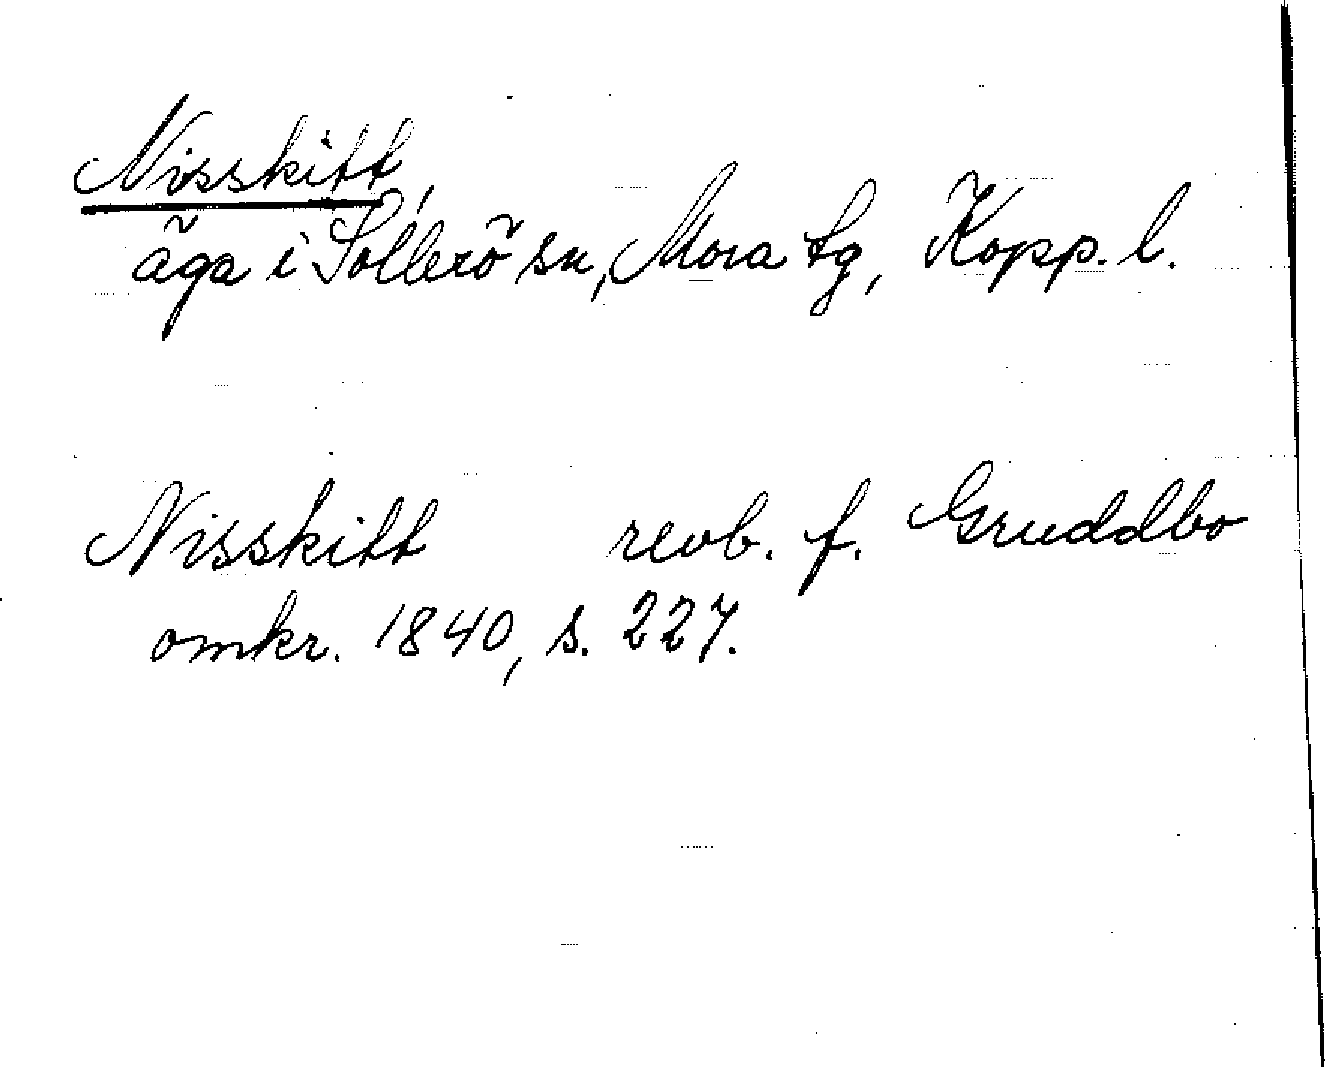 Nisskitt,
äga i Sollerö sn, Mora tg, Kopp. l.
Nisskitt revb. f. Gruddbo
omkr. 1840, s. 227.